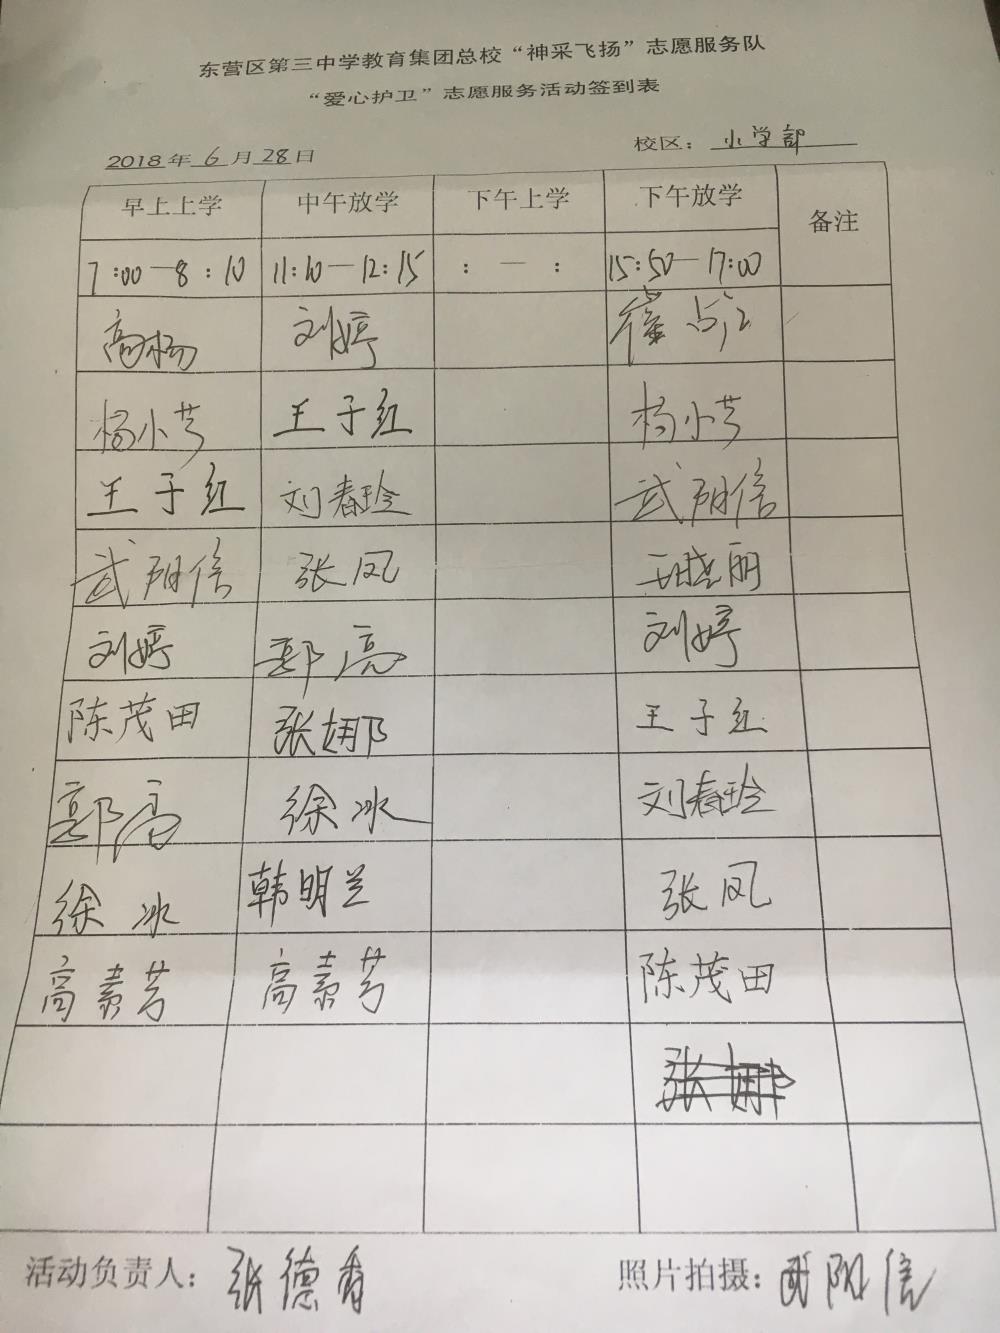 东营区第三中学教育集团总校“神采飞扬”志愿服务队
“爱心护卫”志愿服务活动签到表
2018年6月28日 校区：小学部
早上上学 中午放学 下午上学 下午放学 备注
7:00—8:10 11:10—12:15 : — : 15:50—17:00
高杨 刘婷 占江
杨小芳 王子红 杨小芳
王子红 刘春玲 武阳信
武阳信 张凤 晓丽
刘婷 郭亮 刘婷
陈茂田 张娜 王子红
郭亮 徐冰 刘春玲
徐冰 韩明兰 张凤
高素芳 高素芳 陈茂田
张娜
活动负责人：张德青 照片拍摄：武阳信